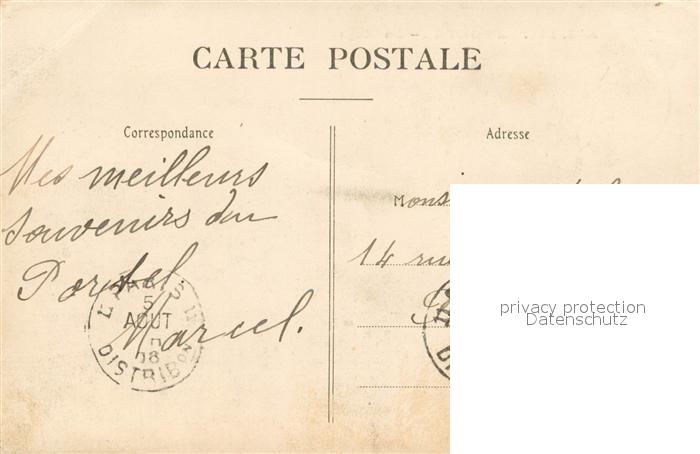 CARTE POSTALE
Correspondance
Adresse
Mes meilleurs
souvenirs du
Portel.
Marcel.
PARIS
5
AOUT
08
DISTRIBON
Mons
14 rue
privacy protection
Datenschutz